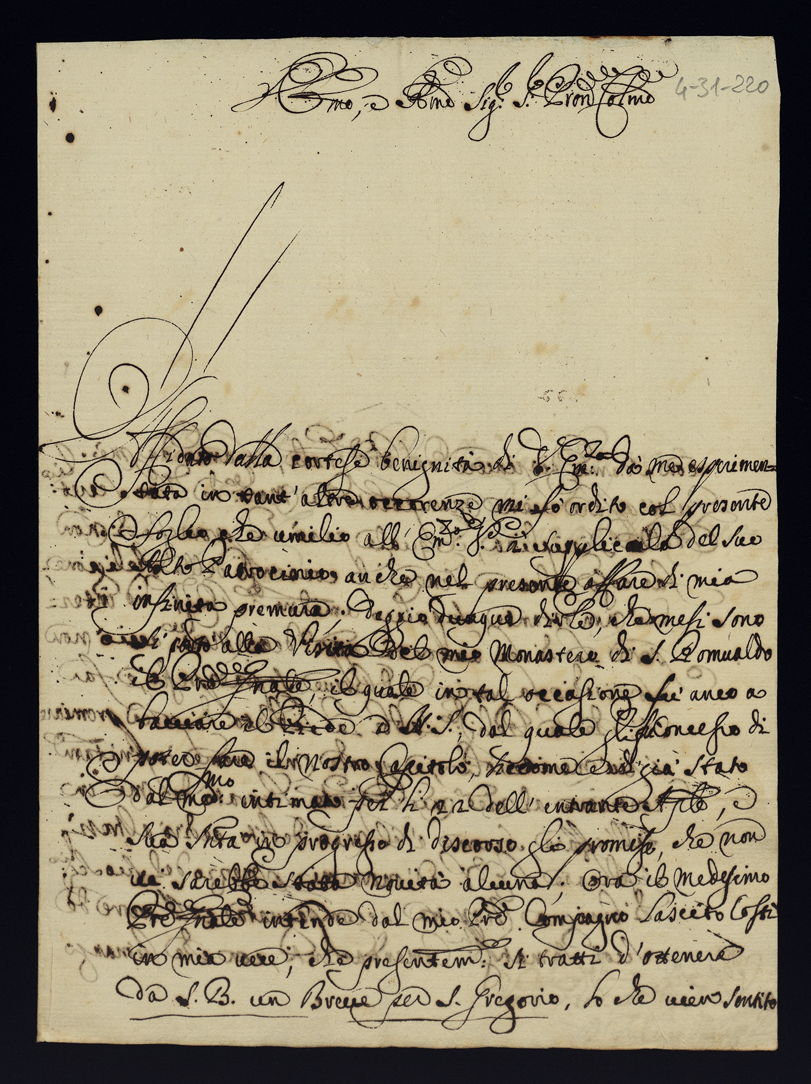 Emo, e Rmo Sig.r S.r Pron Colmo
4-31-220
Affidato dalla cortese benignità di V. Em.za da me esperimen=
tata in tant' altre occorenze mi fò ardito col presente
foglio che umilio all' Em.za V. di supplicarla del suo
alto Patrocinio, anche nel presente affare di mia
infinita premura; Deggio dunque dirle, che mesi sono
alla Visita del mio Monastero di S. Romualdo
il Pre Gnale, il quale in tal occasione fù anco a
bacciare il Piede a N. S., dal quale gli fù Concesso di
poter fare il Nostro Capitolo, siccome è di già stato
dal Medmo intimato per li 22 dell' entrante Aple, e
Sua Stà in progresso di discorso gli promise, che non
vi sarebbe stata novità alcuna; Ora il Medesimo
Pre Gnale intende dal mio Pre Compagno Lasciato Costì
in mia vece, che presentem: si tratti d'ottenere
da S. B. un Breve per S. Gregorio, lo che vien sentito